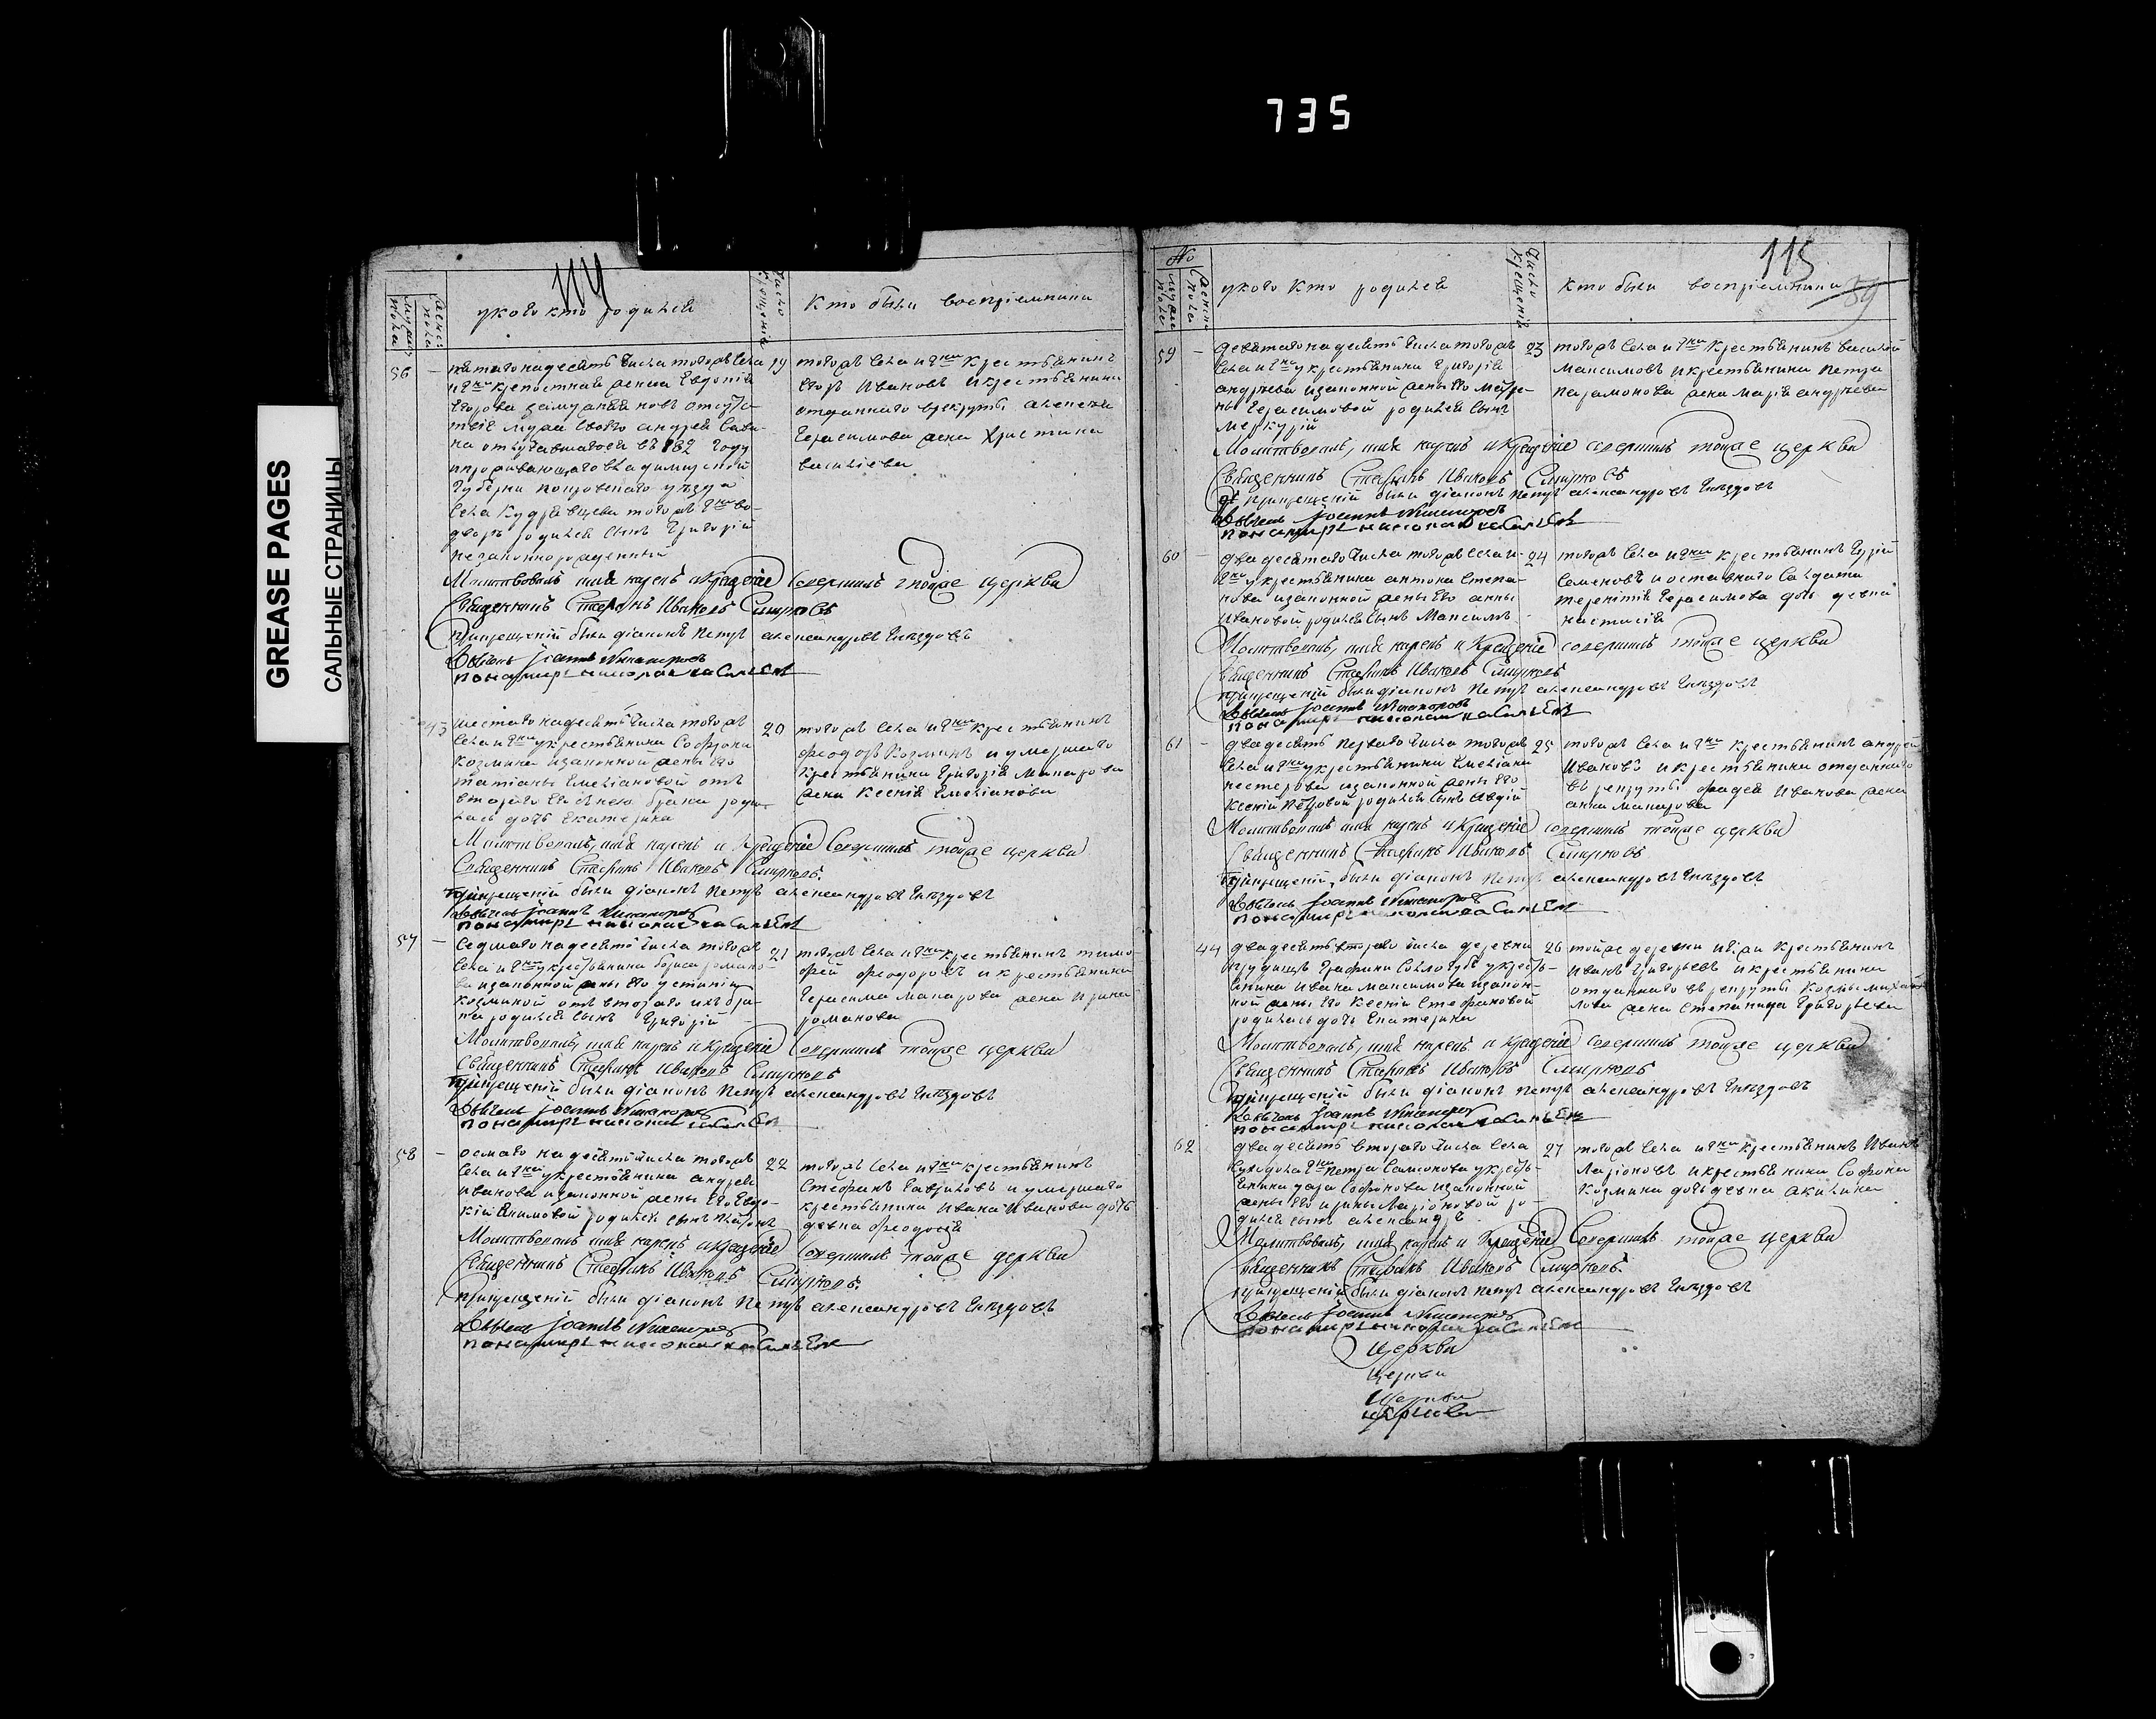 735
GREASE PAGES
САЛЬНЫЕ СТРАНИЦЫ
114
Мужеска пола
Женска пола
У кого кто родился
Число крещенія
Кто были воспріемники
56
пятагонадесять числа тогожъ села
крепостная женка Евдокія
Егорова
мужа своего андрея
въ году
губерни покровскаго уезда
села тогожъ
родился сынъ Григорій
незаконнорожденный
19
тогожъ села и крестьянинъ
Егоръ Ивановъ и крестьянина
отданнаго врекруты алексея
Герасимова жена Христина
василіева
Молитвовалъ, имя нарекъ и Крещеніе совершилъ тойже церкви
Священникъ Стефанъ Ивановъ Смирновъ
при крещеніи были діаконъ Петръ александровъ Гнездовъ
Дьячекъ Іоаннъ Никаноровъ
пономарь николай василевъ
43
шестагонадесять числа тогожъ
села и у крестьянина Софрона
козмина изаконной жены его
татіаны Емеліановой отъ
втораго ево с нею брака роди-
лась дочь Екатерина
20
тогожъ села и крестьянинъ
феодоръ Козминъ и умершаго
крестьянина Григорія Макарова
жена Ксенія Емеліанова
Молитвовалъ, имя нарекъ и Крещеніе Совершилъ тойже церкви
Священникъ Стефанъ Ивановъ Смирновъ.
при крещеніи были діаконъ Петръ александровъ Гнездовъ
Дьячекъ Іоаннъ Никаноровъ
пономарь николай василевъ
57
Седмагонадесять числа тогожъ
села и у крестьянина бориса романо-
ва изаконной жены его устиніи
козминой отъ втораго ихъ бра-
ка родился сынъ Григорій
21
тогожъ села и крестьянинъ тимо-
фей феодоровъ и крестьянина
Герасима макарова жена Ирина
романова
Молитвовалъ, имя нарекъ и Крещеніе Совершилъ тойже церкви
Священникъ Стефанъ Ивановъ Смирновъ
при крещеніи были діаконъ Петръ александровъ Гнездовъ
Дьячекъ Іоаннъ Никаноровъ
пономарь николай василевъ
58
осмагонадесять числа тогожъ
села и у крестьянина андрея
иванова изаконной жены его Евдо-
кіи родился сынъ
22
тогожъ села и крестьянинъ
Стефанъ Гавриловъ и умершаго
крестьянина Ивана Иванова дочь
девка феодосія
Молитвовалъ имя нарекъ и Крещеніе Совершилъ тойже церкви
Священникъ Стефанъ Ивановъ Смирновъ.
при крещеніи были діаконъ Петръ александровъ Гнездовъ
Дьячекъ Іоаннъ Никаноровъ
пономарь николай василевъ
115
89
№
Мужеска пола
Женска пола
У кого кто родился
Число крещенія
Кто были воспріемники
59
девятагонадесять числа тогожъ
села и у крестьянина Григорія
андреева изаконной жены его матре-
ны Герасимовой родился сынъ
меркурій
23
тогожъ села и крестьянинъ василій
максимовъ и крестьянина Петра
парамонова жена Марія андреева
Молитвовалъ, имя нарекъ и Крещеніе совершилъ тойже церкви
Священникъ Стефанъ Ивановъ Смирновъ
при крещеніи были діаконъ Петръ александровъ Гнездовъ
Дьячекъ Іоаннъ Никаноровъ
пономарь николай василевъ
60
двадесятаго числа тогожъ села и
у крестьянина антона степа-
нова изаконной жены его анны
ивановой родился сынъ Максимъ
24
тогожъ села и крестьянинъ Гурій
Семеновъ и отставнаго Салдата
терентія Герасимова дочь девка
настасія
Молитвовалъ, имя нарекъ и Крещеніе совершилъ тойже церкви
Священникъ Стефанъ Ивановъ Смирновъ
при крещеніи были діаконъ Петръ александровъ Гнездовъ
Дьячекъ Іоаннъ Никаноровъ
пономарь николай василевъ
61
двадесять перваго числа тогожъ
села и у крестьянина Емеліана
нестерова изаконной жены его
Ксеніи Петровой родился сынъ Авдій
25
тогожъ села и крестьянинъ андрей
Ивановъ и крестьянина отданнаго
въ рекруты фадея Иванова жена
анна Макарова
Молитвовалъ имя нарекъ и Крещеніе совершилъ тойже церкви
Священникъ Стефанъ Ивановъ Смирновъ
при крещеніи были діаконъ Петръ александровъ Гнездовъ
Дьячекъ Іоаннъ Никаноровъ
пономарь николай василевъ
44
двадесять втораго числа деревни
прудищъ Графини у кресть-
янина Ивана Максимова изакон-
ной жены его Ксеніи Стефановой
родилась дочь Екатерина
26
тойже деревни и крестьянинъ
Иванъ Григорьевъ и крестьянина
отданнаго въ рекруты Козмы михай-
лова жена Степанида Григорьева
Молитвовалъ, имя нарекъ и крещеніе совершилъ тойже церкви
Священникъ Стефанъ Ивановъ Смирновъ
при крещеніи были діаконъ Петръ александровъ Гнездовъ
Дьячекъ Іоаннъ Никаноровъ
пономарь николай василевъ
62
двадесять втораго числа села
Петра у кресть-
янина Софонова изаконной
жены его ирины Ларіоновой ро-
дился сынъ александръ
27
тогожъ села и крестьянинъ Иванъ
Ларіоновъ и крестьянина Софрона
Козмина дочь девка Акилина
Молитвовалъ, имя нарекъ и Крещеніе Совершилъ тойже церкви
Священникъ Стефанъ Ивановъ Смирновъ.
при крещеніи были діаконъ Петръ александровъ Гнездовъ
Дьячекъ Іоаннъ Никаноровъ
пономарь николай василевъ
Церкви
Церкви
Церкви
церкви